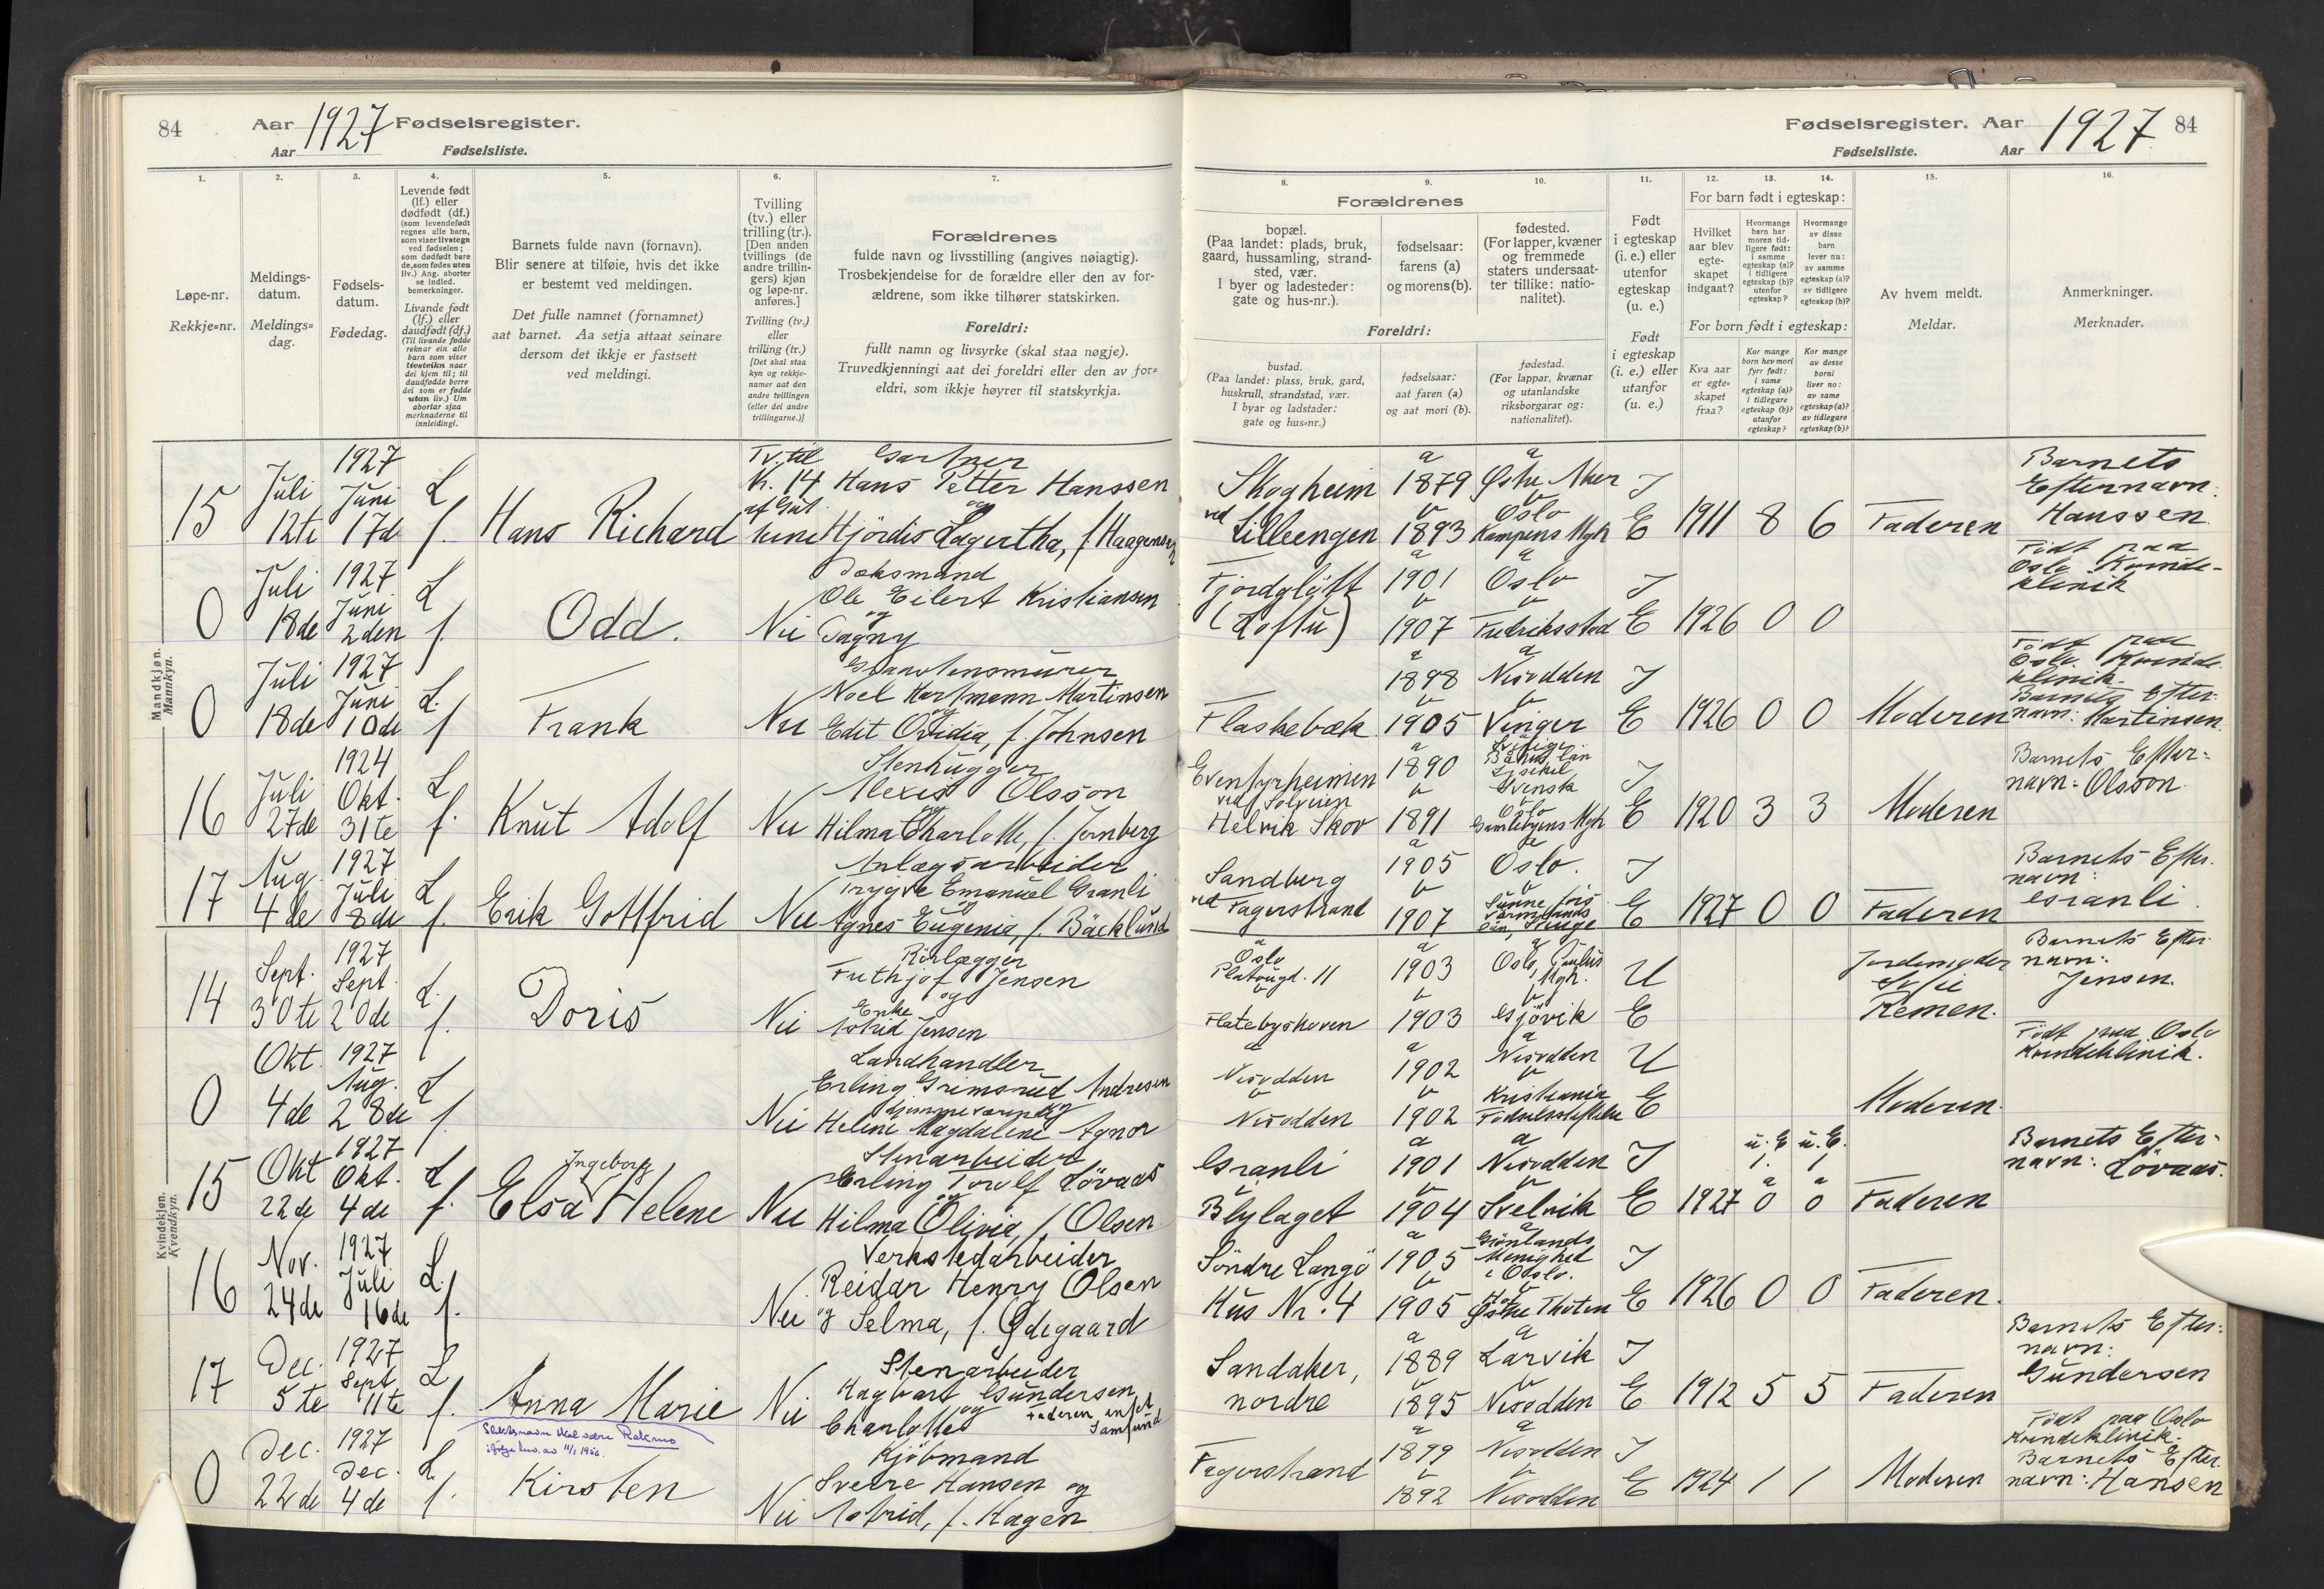 84
Aar 1927 Fødselsregister.
Aar
Fødselsliste.
1.
Løpe-nr.
Rekkje=nr.
2.
Meldings-
datum.
Meldings=
dag.
3.
Fødsels-
datum.
Fødedag.
4.
Levende født
(lf.) eller
dødfødt (df.)
(som levendefødt
regnes alle barn,
som viser livstegn
ved fødselen;
som dødfødt bare
de, som fødes uten
liv.) Ang. aborter
se indled.
bemerkninger.
Livande født
(lf.) eller
daudfødt (df.)
(Til livande fødde
reknar ein alle
barn som viser
livsteikn naar
dei kjem til; til
daudfødde berre
dei som er fødde
utan liv.) Um
abortar sjaa
merknaderne til
innleidingi.
5.
Barnets fulde navn (fornavn).
Blir senere at tilføie, hvis det ikke
er bestemt ved meldingen.
Det fulle namnet (fornamnet)
aat barnet. Aa setja attaat seinare
dersom det ikkje er fastsett
ved meldingi.
6.
Tvilling
(tv.) eller
trilling (tr.).
[Den anden
tvillings (de
andre trillin-
gers) kjøn
og løpe-nr.
anføres.]
Tvilling (tv.)
eller
trilling (tr.)
[Det skal staa
kyn og rekkje-
numer aat den
andre tvillingen
(eller dei andre
trillingarne.)]
7.
Forældrenes
fulde navn og livsstilling (angives nøiagtig).
Trosbekjendelse for de forældre eller den av for-
ældrene, som ikke tilhører statskirken.
Foreldri:
fullt namn og livsyrke (skal staa nøgje).
Truvedkjenningi aat dei foreldri eller den av for=
eldri, som ikkje høyrer til statskyrkja.
Mandkjøn.
Mannkyn.
15 Juli 12te 1927 Juni 17de L f. Hans Richard Tv. til
N. 14
af Gut
tvene
Gartner
Hans Petter Hanssen
og
Hjördis Lagertha, f. Haagensen
0 Juli 18de 1927 Juni 2den L f. Odd. Nei
Ole Eilert Kristiansen
og
Dagny
0 Juli 18de 1927 Juni 10de L. f Frank Nei
Noel Hartmann Martinsen
og
Edit Ovidia, f. Johnsen
16 Juli 27de 1924 Okt. 31te L f. Knut Adolf Nei
Stenhugger
Alexis Olsson
og
Hilma Charlotte, f. Jernberg
17 Aug 4de 1927 Juli 8de L f. Erik Gottfrid Nei
Anlægsarbeider
Trygve Emanuel Granli
og
Agnes Eugenia, f. Bäcklund
Kvindekjøn.
Kvendkyn.
14 Sept. 30te 1927 Sept. 20de L. f. Doris Nei
Rörlægger
Frithjof Jensen
og
Enke
Astrid Jensen
0 Okt. 4de 1927 Aug. 28de L f. Nei
Landhandler
Erling Grimsrud Andresen
og
Helene Magdalene Agnor
15 Okt 22de 1927 Okt. 4de L f. Ingeborg
Elsa Helene Nei
Stenarbeider
Erling Torolf Lövaas
og
Hilma Olivia, f. Olsen
16 Nov. 24de 1927 Juli 16de L. f. Nei
Verkstedarbeider
Reidar Henry Olsen
og Selma, f. Ødegaard
17 Dec. 5te 1927 Sept 11te L f. Anna Marie Nei
Stenarbeider
Hagbart Gundersen
og
Charlotte
Faderen intet
Samfund
0 Dec. 22de 1927 Dec. 4de L. f. Kirsten Nei
Kjöbmand
Sverre Hansen og
Astrid, f. Hagen
Fødselsregister. Aar 1927 84
Fødselsliste. Aar
8.
Forældrenes
bopæl.
(Paa landet: plads, bruk,
gaard, hussamling, strand-
sted, vær.
I byer og ladesteder:
gate og hus-nr.).
Foreldri:
bustad.
(Paa landet: plass, bruk, gard,
huskrull, strandstad, vær.
I byar og ladstader:
gate og hus=nr.)
9.
fødselsaar:
farens (a)
og morens (b).
fødselsaar:
aat faren (a)
og aat mori (b).
10.
fødested.
(For lapper, kvæner
og fremmede
staters undersaat-
ter tillike: natio-
nalitet).
fødestad.
(For lappar, kvænar
og utanlandske
riksborgarar og:
nationalitet).
11.
Født
i egteskap
(i. e.) eller
utenfor
egteskap
(u. e.)
Født
i egteskap
(i. e.) eller
utanfor
(u. e.)
12. 13. 14.
For barn født i egteskap:
Hvilket
aar blev
egte-
skapet
indgaat?
Hvormange
barn har
moren tid-
ligere født:
i samme
egteskap (a)?
i tidligere
egteskap (b)?
utenfor
egteskap?
Hvormange
av disse
barn
lever nu:
av samme
egteskap (a)?
av tidligere
egteskap (b)?
For born født i egteskap:
Kva aar
er egte-
skapet
fraa?
Kor mange
born hev mori
fyrr født:
i same
egteskap (a)?
i tidlegare
egteskap (b)?
utanfor
egteskap?
Kor mange
av desse
borni
liver no:
av same
egteskap (a)?
av tidlegare
egteskap (b)?
15.
Av hvem meldt.
Meldar.
16.
Anmerkninger.
Merknader.
Skogheim
ved
Lilleengen
a 1879 b 1893 a Østre Aker b Oslo Kampens Mgh I E 1911 8 6 Faderen
Barnets
Efternavn:
Hanssen.
a 1901 b 1907 a Oslo b Fredriksstad I E 1926 0 0
Født paa
Oslo Kvinde-
klinik
Flaskebæk a 1898 b 1905 a Nesodden b Vinger I E 1926 0 0 Moderen
Født paa
Oslo Kvinde
klinik.
Barnets Efter-
navn: Martinsen
Eventyrheimen
ved Solveien
Helvik Skov
a 1890 b 1891 Sverige
Svensk
b Oslo
Gamlebyens Mgh I E 1920 3 3 Moderen
Barnets Efter-
navn: Olsson.
Sandberg
ved Fagerstrand
a 1905 b 1907 Oslo. b Sunne
Värmlands
län, Sverige I E 1927 0 0 Faderen
Barnets Efter-
navn:
Granli.
a
Oslo
Platougt. 11
b
Flatebyskoven
a 1903 b 1903 a Oslo, Paulus
Mgh. b Gjövik U E Jordemoder
Remen.
Barnets Efter-
navn:
Jensen.
a
Nesodden
b
Nesodden
a 1902 b 1902 a Nesodden b Kristiania
Fødselsstiftelse U E Moderen.
Født paa Oslo
Kvindeklinik.
Granli
Blylaget
a 1901 b 1904 a Nesodden b Svelvik I E 1927 u. E. 1. a 0 u. E. 1 a 0 Faderen
Barnets Efter-
navn: Lövaas.
Söndre Langö
Hus Nr. 4
a 1905 b 1905 Grönlands
Menighed
i Oslo.
Østre Thoten I E 1926 0 0 Faderen.
Sandaker,
nordre
a 1889 b 1895 a Larvik b Nesodden I E 1912 5 5 Faderen
Barnets Efter-
navn:
Gundersen
Fagerstrand a 1899 b 1892 a Nesodden b Nesodden I E 1924 1 1 Moderen
Født paa Oslo
Kvindeklinik.
Barnets Efter-
navn: Hansen